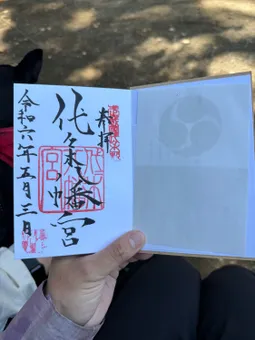 奉拝
代々木八幡宮
令和六年五月三日